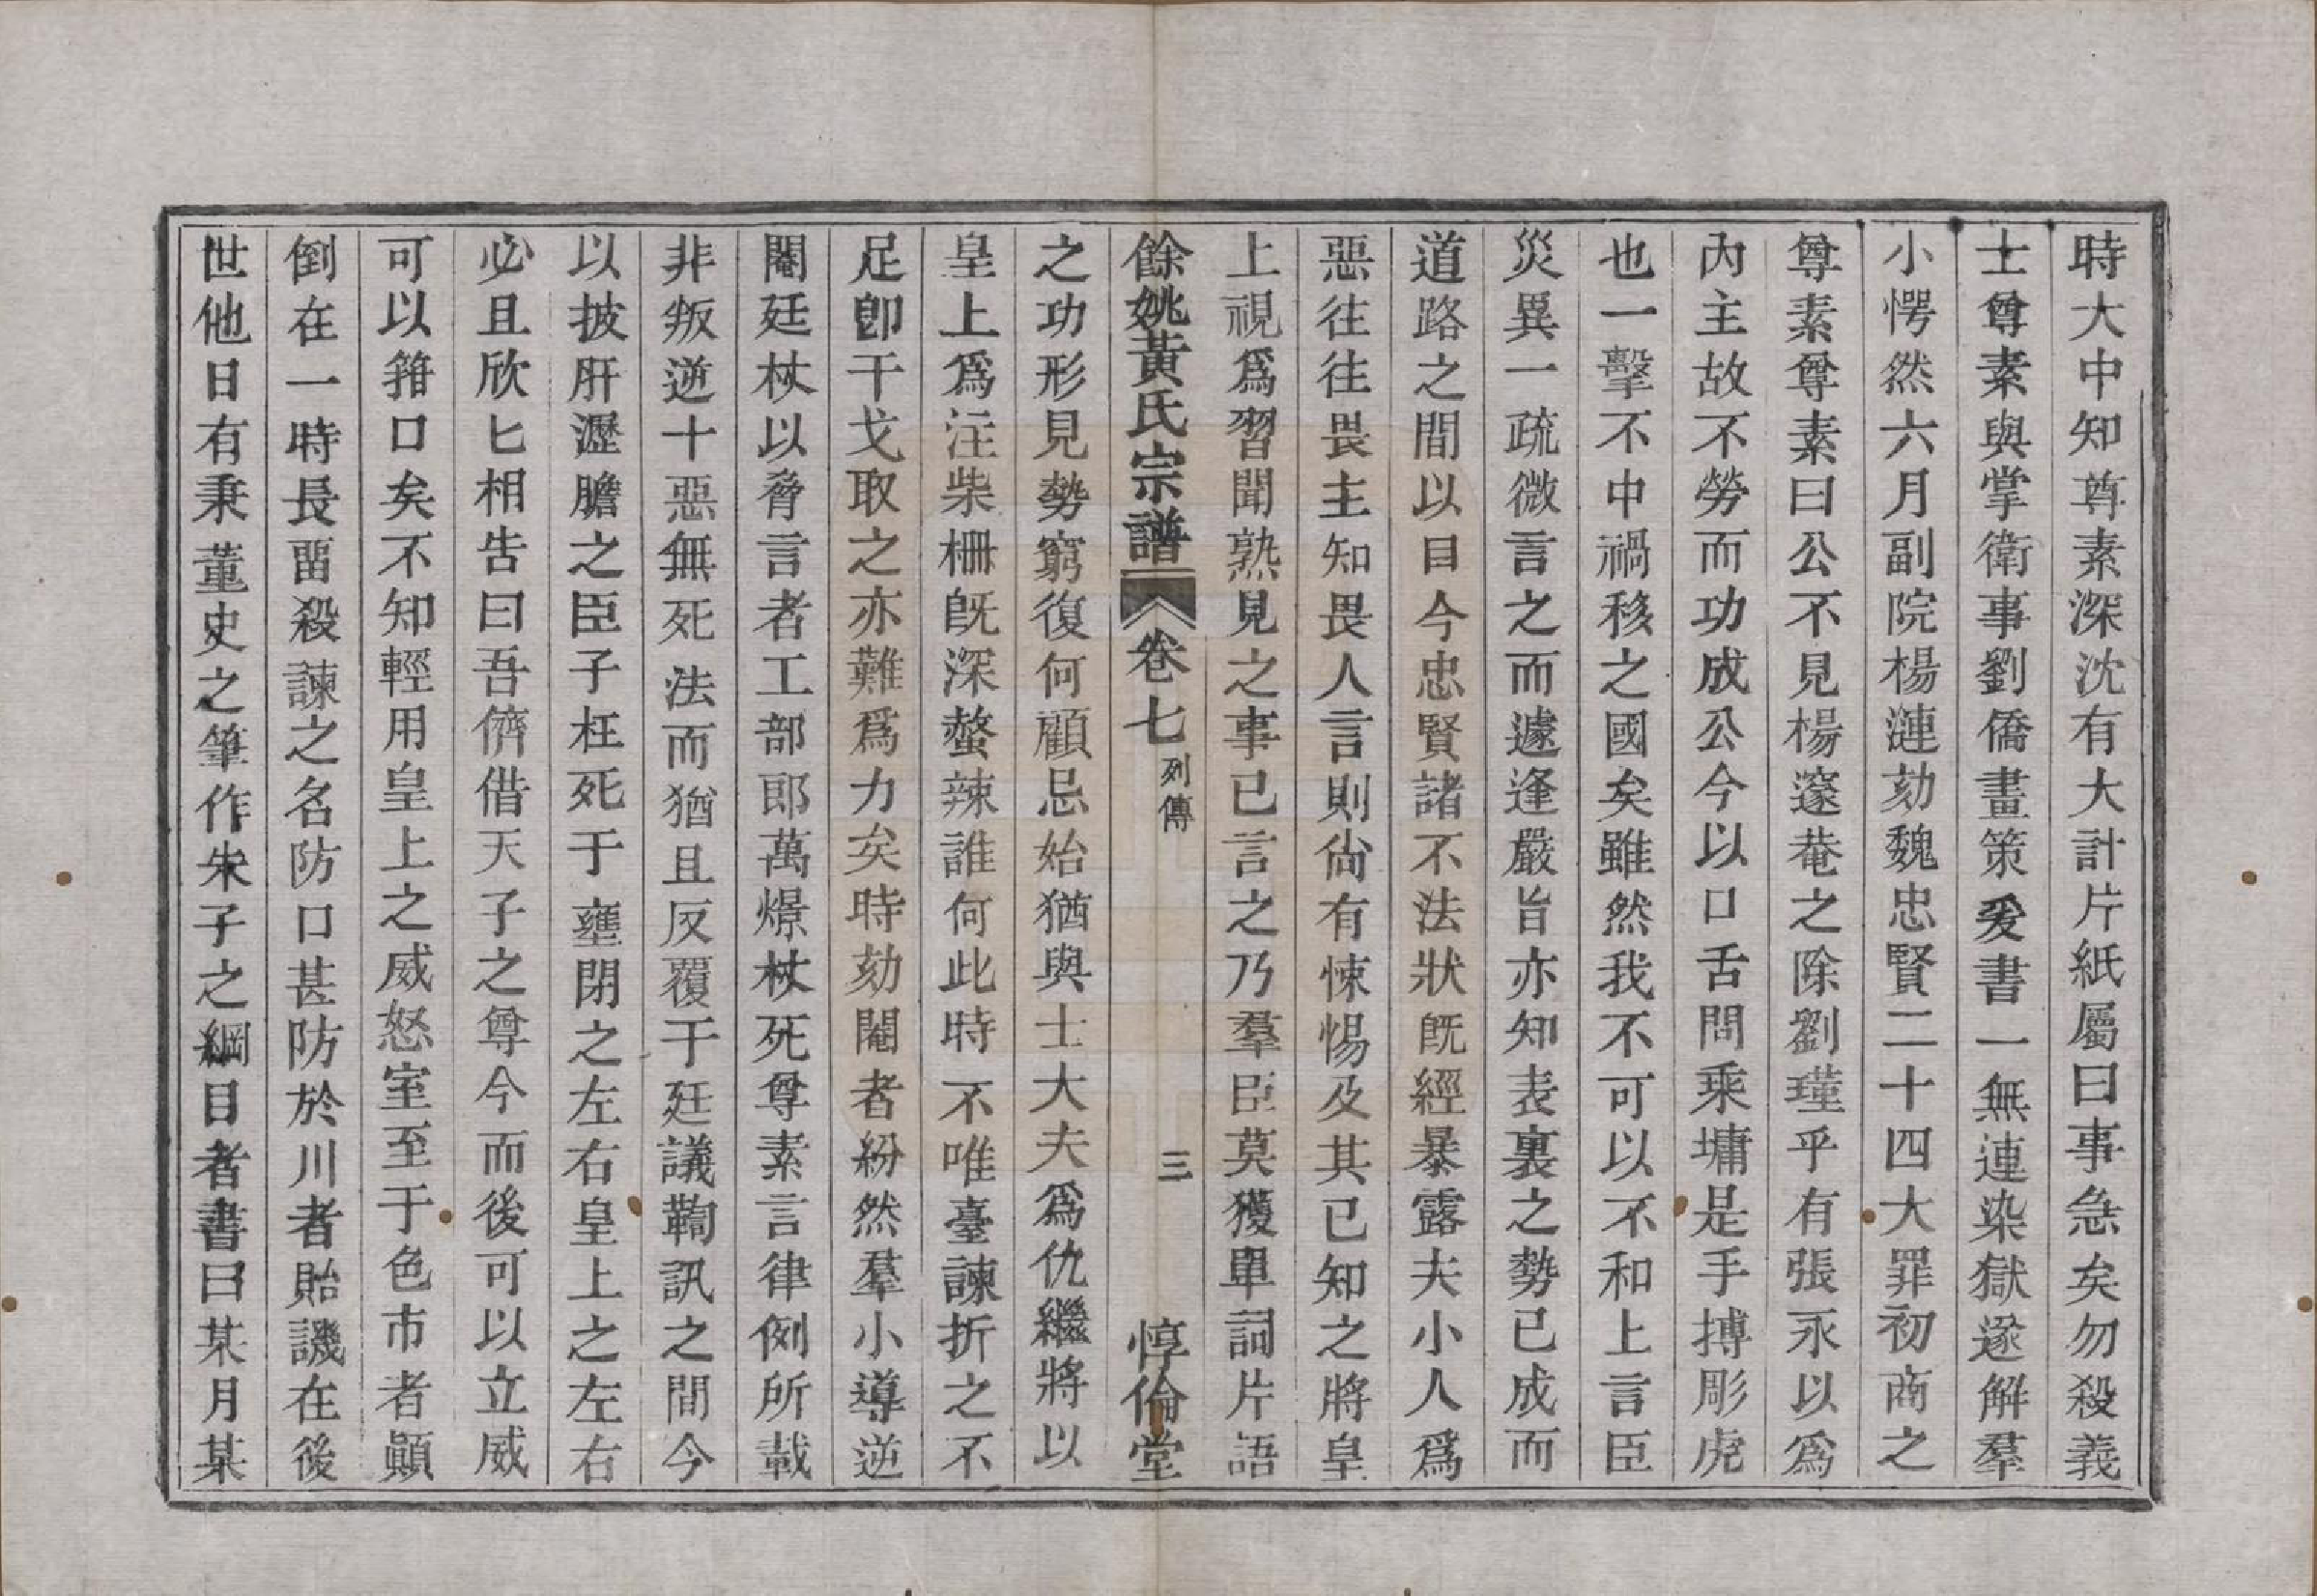 時大中知尊素深沈有大計片紙屬曰事急矣勿殺義
士尊素與掌衛事劉僑畫策爰書一無連染獄遂解羣
小愕然六月副院楊漣劾魏忠賢二十四大罪初商之
尊素尊素曰公不見楊邃菴之除劉瑾乎有張永以爲
內主故不勞而功成公今以口舌問乘墉是手搏彫虎
也一擊不中禍移之國矣雖然我不可以不和上言臣
災異一疏微言之而遽逢嚴旨亦知表裏之勢已成而
道路之間以目今忠賢諸不法狀旣經暴露夫小人爲
惡往往畏主知畏人言則尙有悚惕及其已知之將皇
上視爲習聞熟見之事已言之乃羣臣莫獲單詞片語
餘姚黃氏宗譜 卷七 列傳 三 惇倫堂
之功形見勢窮復何顧忌始猶與士大夫爲仇繼將以
皇上爲注柴柵旣深螫辣誰何此時不唯臺諫折之不
足卽干戈取之亦難爲力矣時劾閹者紛然羣小導逆
閹廷杖以脅言者工部郎萬燝杖死尊素言律例所載
非叛逆十惡無死法而猶且反覆于廷議鞫訊之間今
以披肝瀝膽之臣子枉死于壅閉之左右皇上之左右
必且欣匕相告曰吾儕借天子之尊今而後可以立威
可以箝口矣不知輕用皇上之威怒室至于色市者顚
倒在一時長畱殺諫之名防口甚防於川者貽譏在後
世他日有秉董史之筆作朱子之綱目者書曰某月某